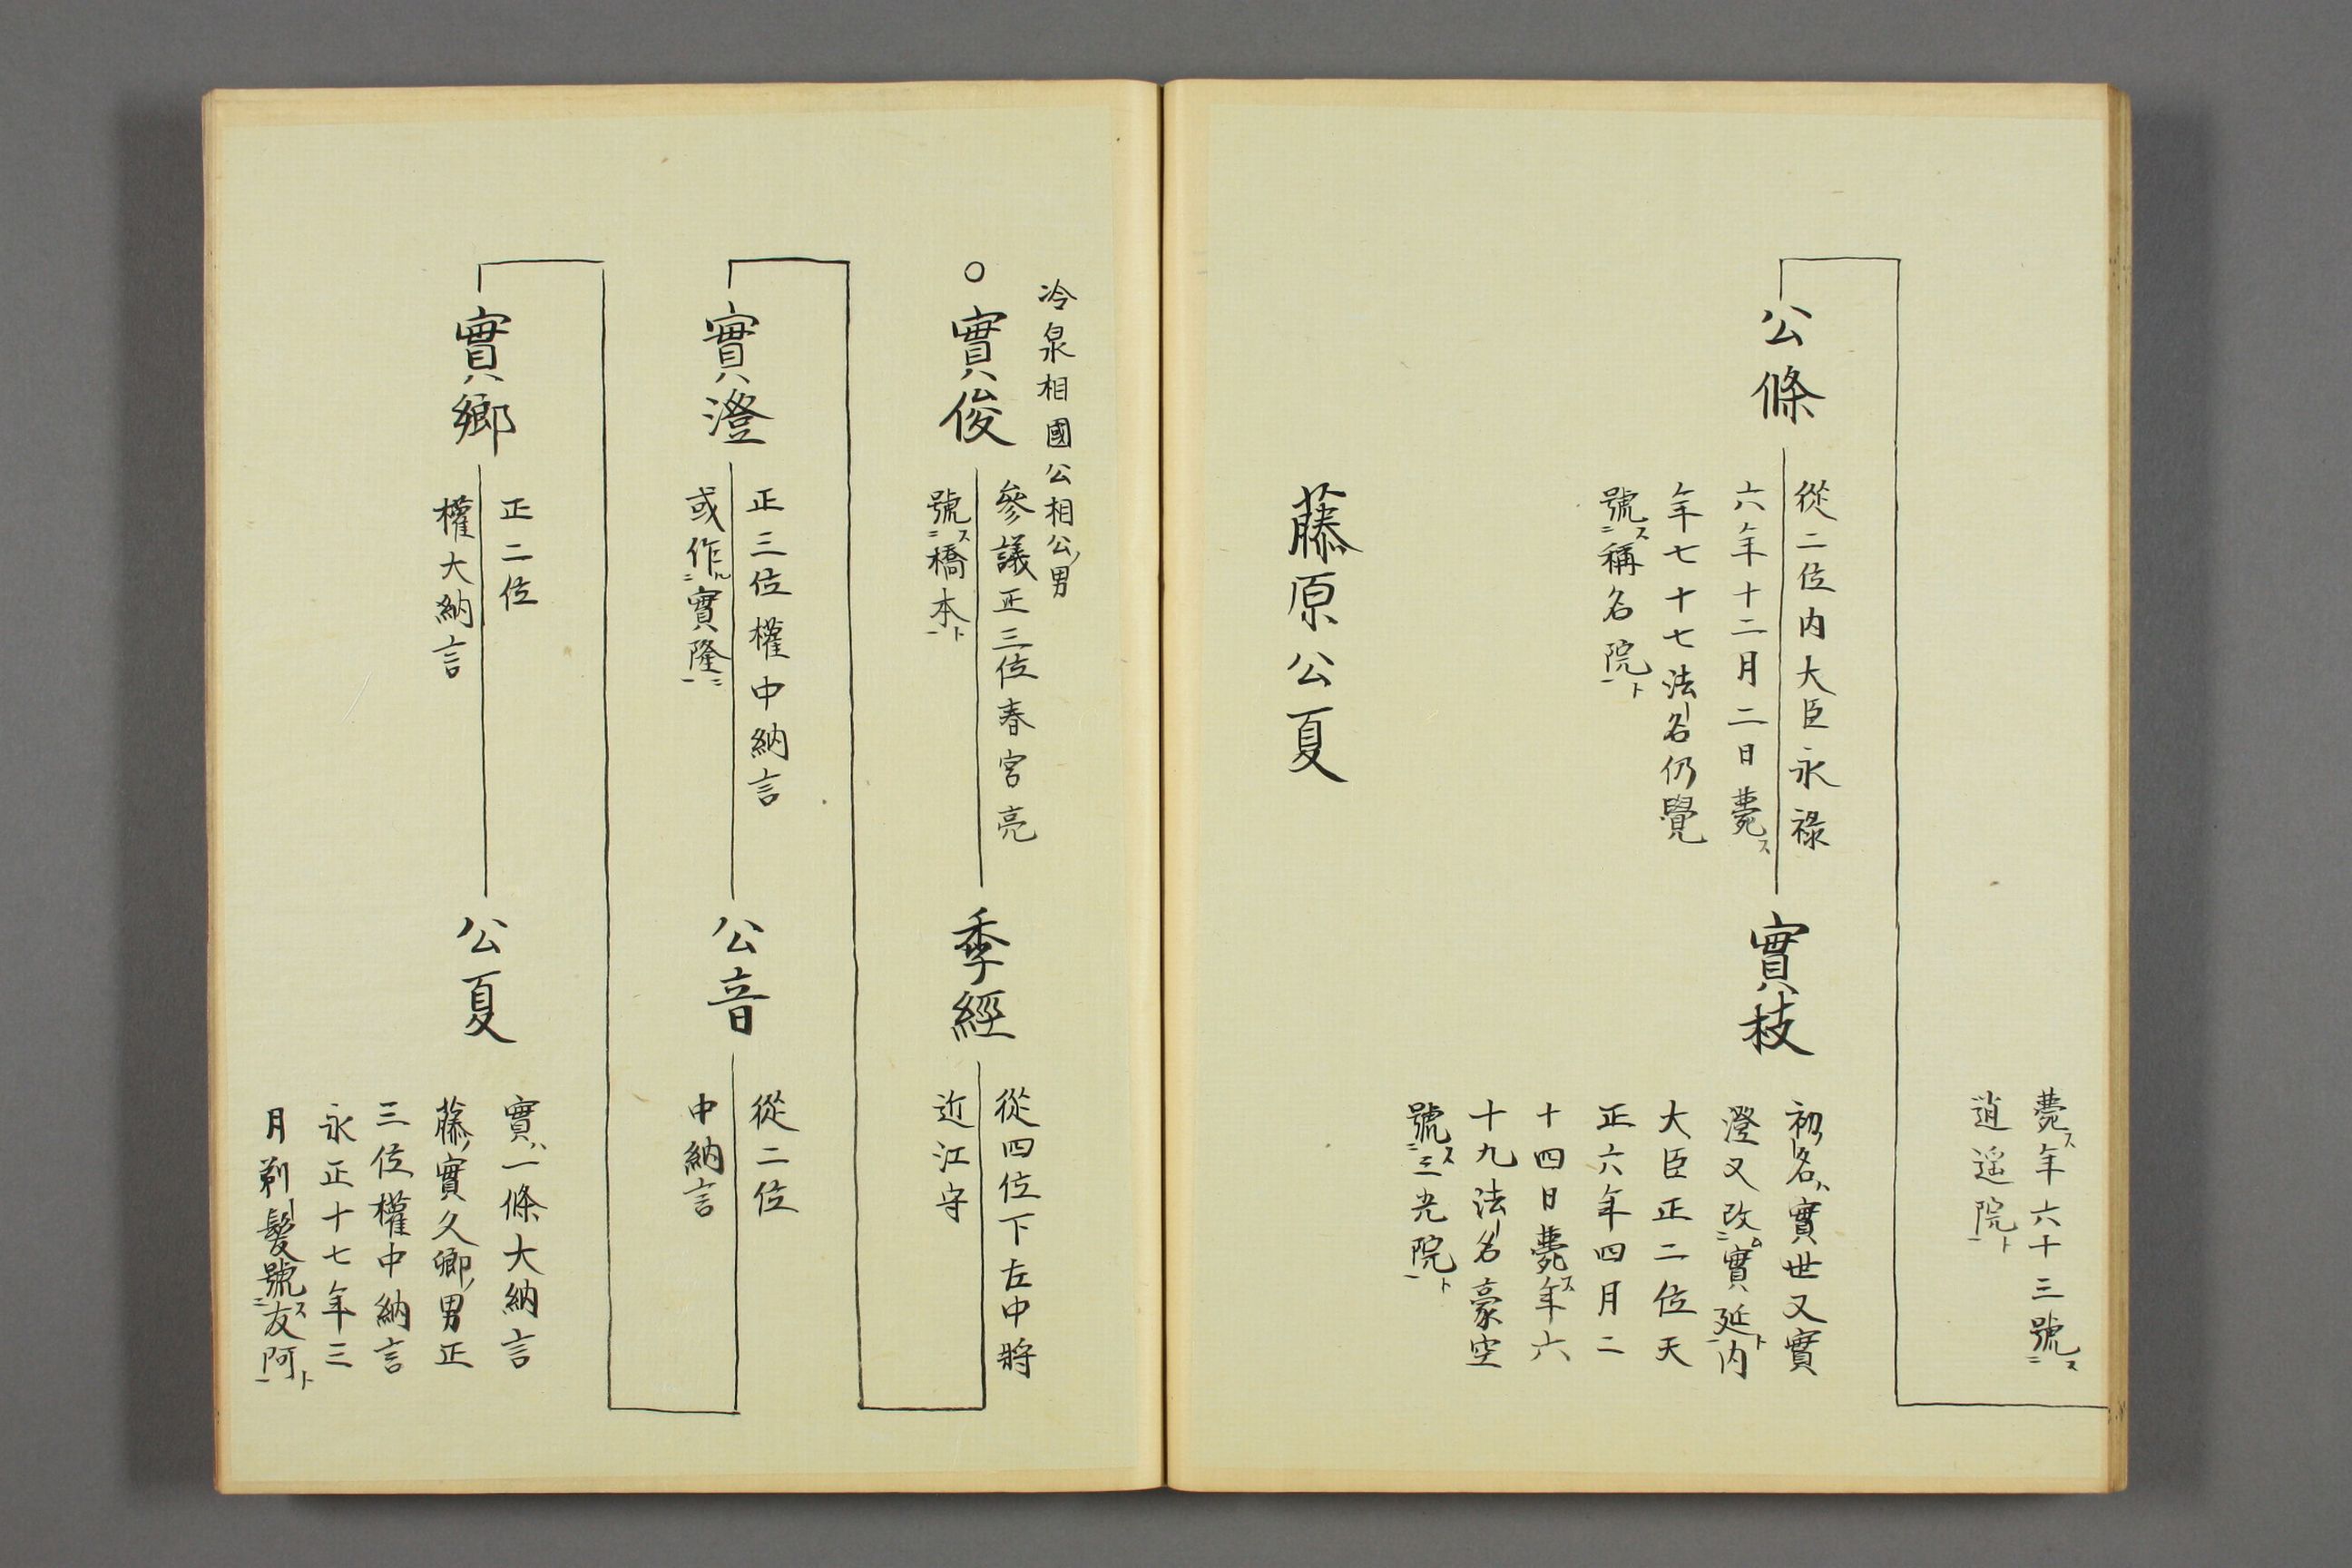 薨ス年六十三號ス二
逍遥院ト一
公條
從二位内大臣永祿
六年十二月二日薨ス
年七十七法名仍覺
號ス二稱名院ト一
實枝
初名ハ實世又實
澄又改ム二實延ト一内
大臣正二位天
正六年四月二
十四日薨ス年六
十九法名豪空
號ス二三光院ト一
藤原公夏
冷泉相國公相公ノ男
○實俊
參議正三位春宮亮
號ス二橋本ト一
季經
從四位下左中將
近江守
實澄
正三位權中納言
或作ル二實隆ニ一
公音
從二位
中納言
實鄉
正二位
權大納言
公夏
實ハ一條大納言
藤ノ實久卿ノ男正
三位權中納言
永正十七年三
月剃髮號ス二友阿ト一